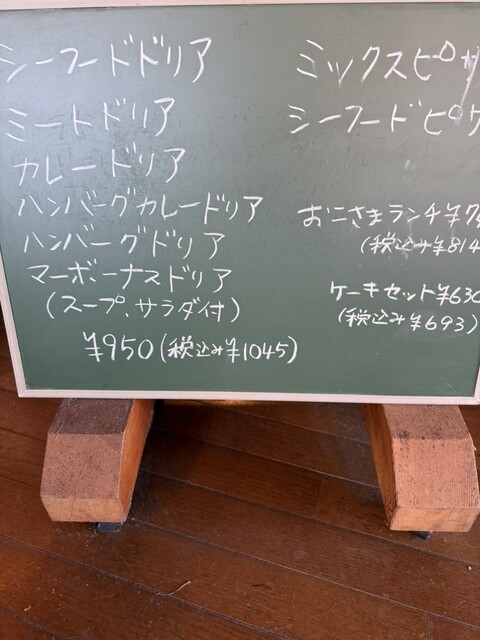 シーフードドリア
ミートドリア
カレードリア
ハンバーグカレードリア
ハンバーグドリア
マーボーナスドリア
(スープ、サラダ付)
¥950(税込み¥1045)
ミックスピザ
シーフードピザ
おこさまランチ¥74
(税込み¥814
ケーキセット¥630
(税込み¥693)